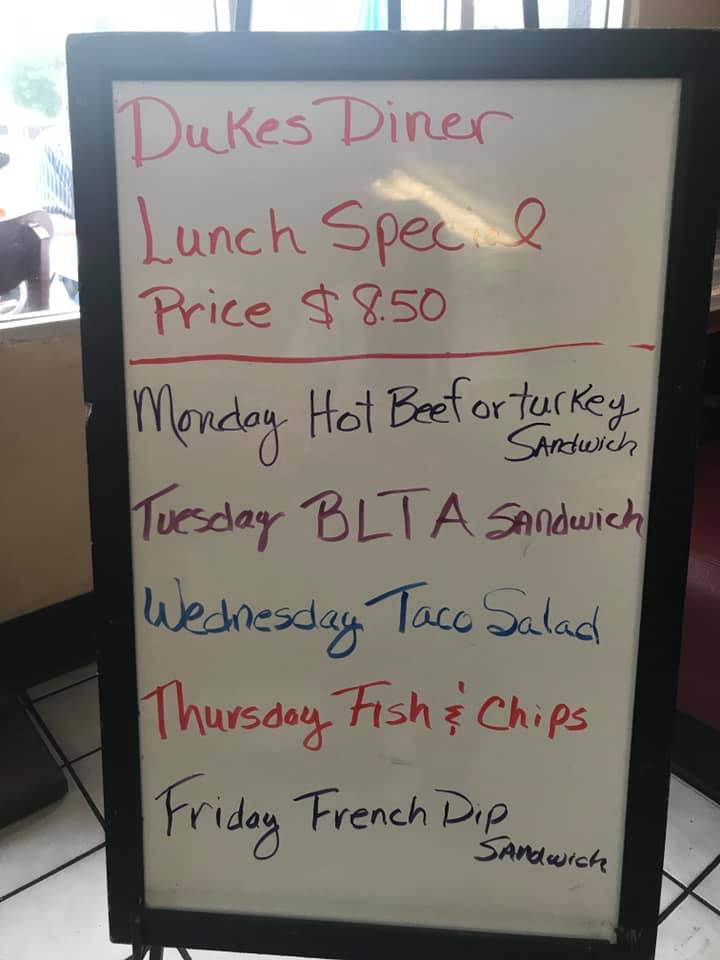 Dukes Diner
Lunch Special
Price $8.50
Monday Hot Beef or turkey
Sandwich
Tuesday BLTA Sandwich
Wednesday Taco Salad
Thursday Fish & Chips
Friday French Dip
Sandwich